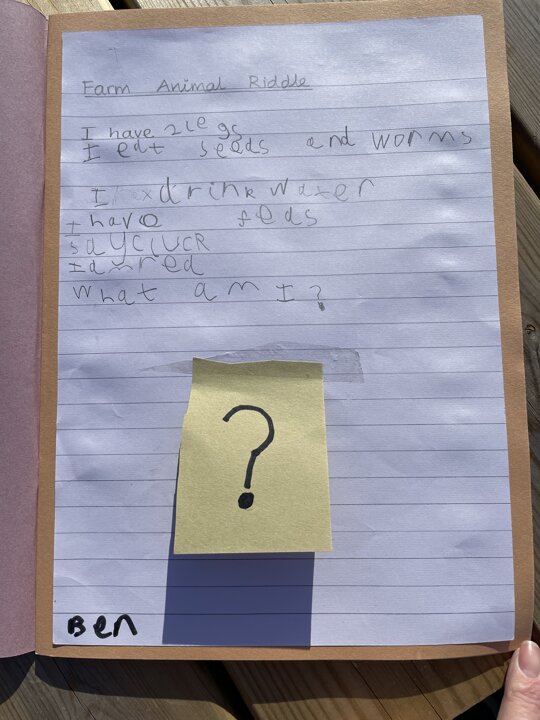 Farm Animal Riddle
I have 2legs
I eat seeds and worms
I drink water
I have feds
say clucR
I am red
What am I?
?
Ben